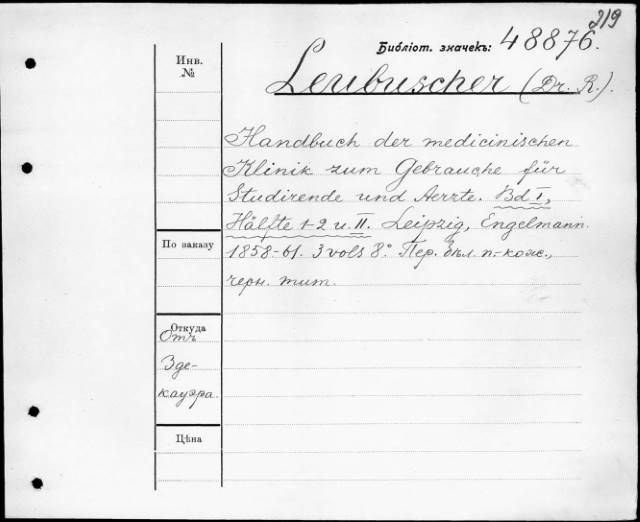 219
Библіот. значекъ: 48876.
Инв.
№
Leubuscher (Dr. R.).
Handbuch der medicinischen
Klinik zum Gebrauche für
Studirende und Aerzte. Bd I,
Hälfte 1-2 u. II. Leipzig, Engelmann.
1858-61. 3 vols 8.° Пер. бѣл. п.-кож.,
черн. тит.
По заказу
Откуда
Отъ
Зде-
кауэра.
Цѣна